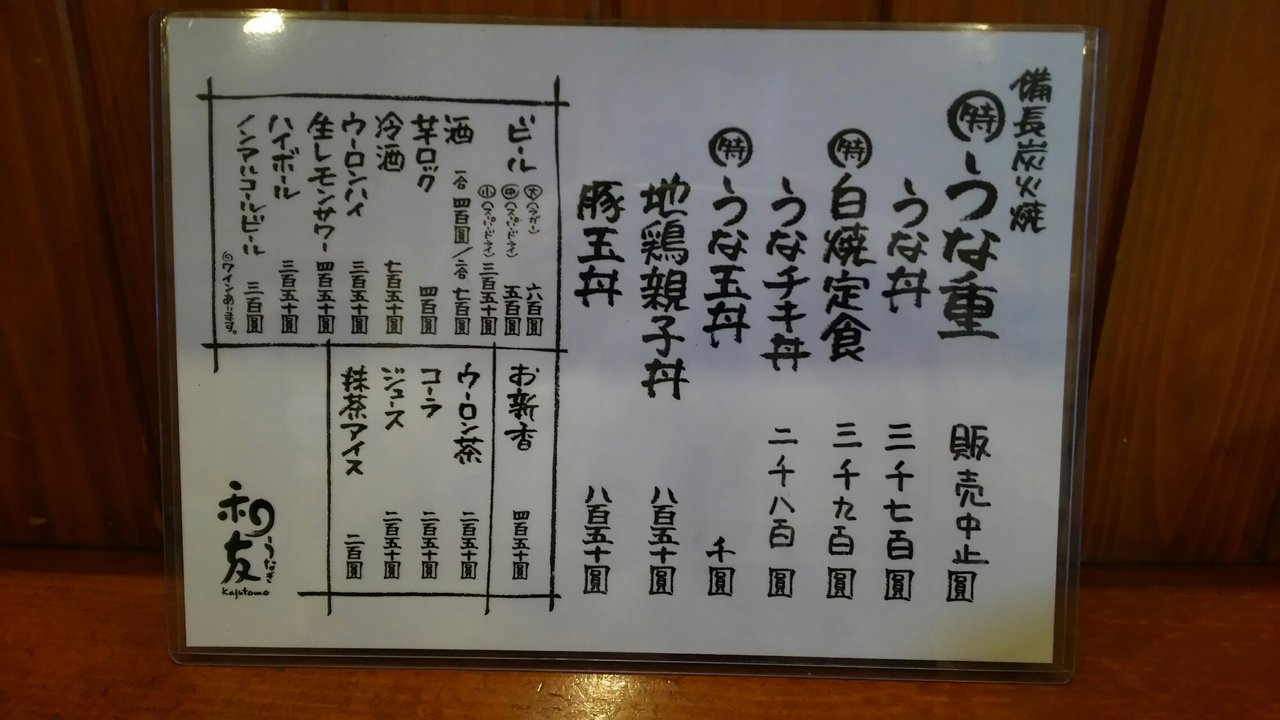 備長炭火焼
特うな重 販売中止圓
うな丼 三千七百圓
特白焼定食 三千九百圓
うなチキ丼 二千八百圓
特うな玉丼 千圓
地鶏親子丼 八百五十圓
豚玉丼 八百五十圓
ビール 大(ラガー) 六百圓
中(スーパードライ) 五百圓
小(スーパードライ) 三百五十圓
酒 一合 四百圓/二合 七百圓
芋ロック 四百圓
冷酒 七百五十圓
ウーロンハイ 三百五十圓
生レモンサワー 四百五十圓
ハイボール 三百五十圓
ノンアルコールビール 三百圓
◎ワインあります。
お新香 四百五十圓
ウーロン茶 二百五十圓
コーラ 二百五十圓
ジュース 二百五十圓
抹茶アイス 二百圓
うなぎ
和友
Kazutomo